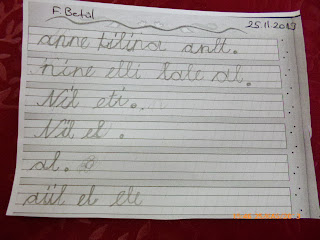 F. Betül
25.11.2013
anne kilina anlt.
nine elli lale al.
Nil eti.
Nil el .
al.
el ele